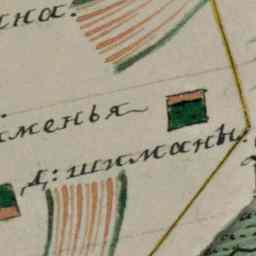 сна:
именья
д: шиманы.